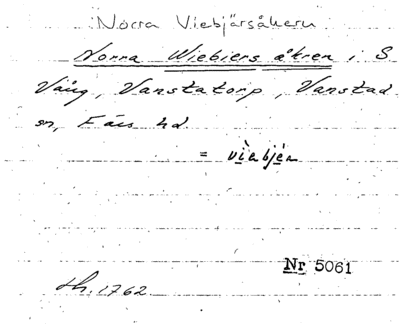 Norra Viebjärsåkern
Norra Wiebiers åkren i S
Vång, Vanstatorp, Vanstad
sn, Färs hd
= vìabjéa
Nr 5061
Sh. 1762